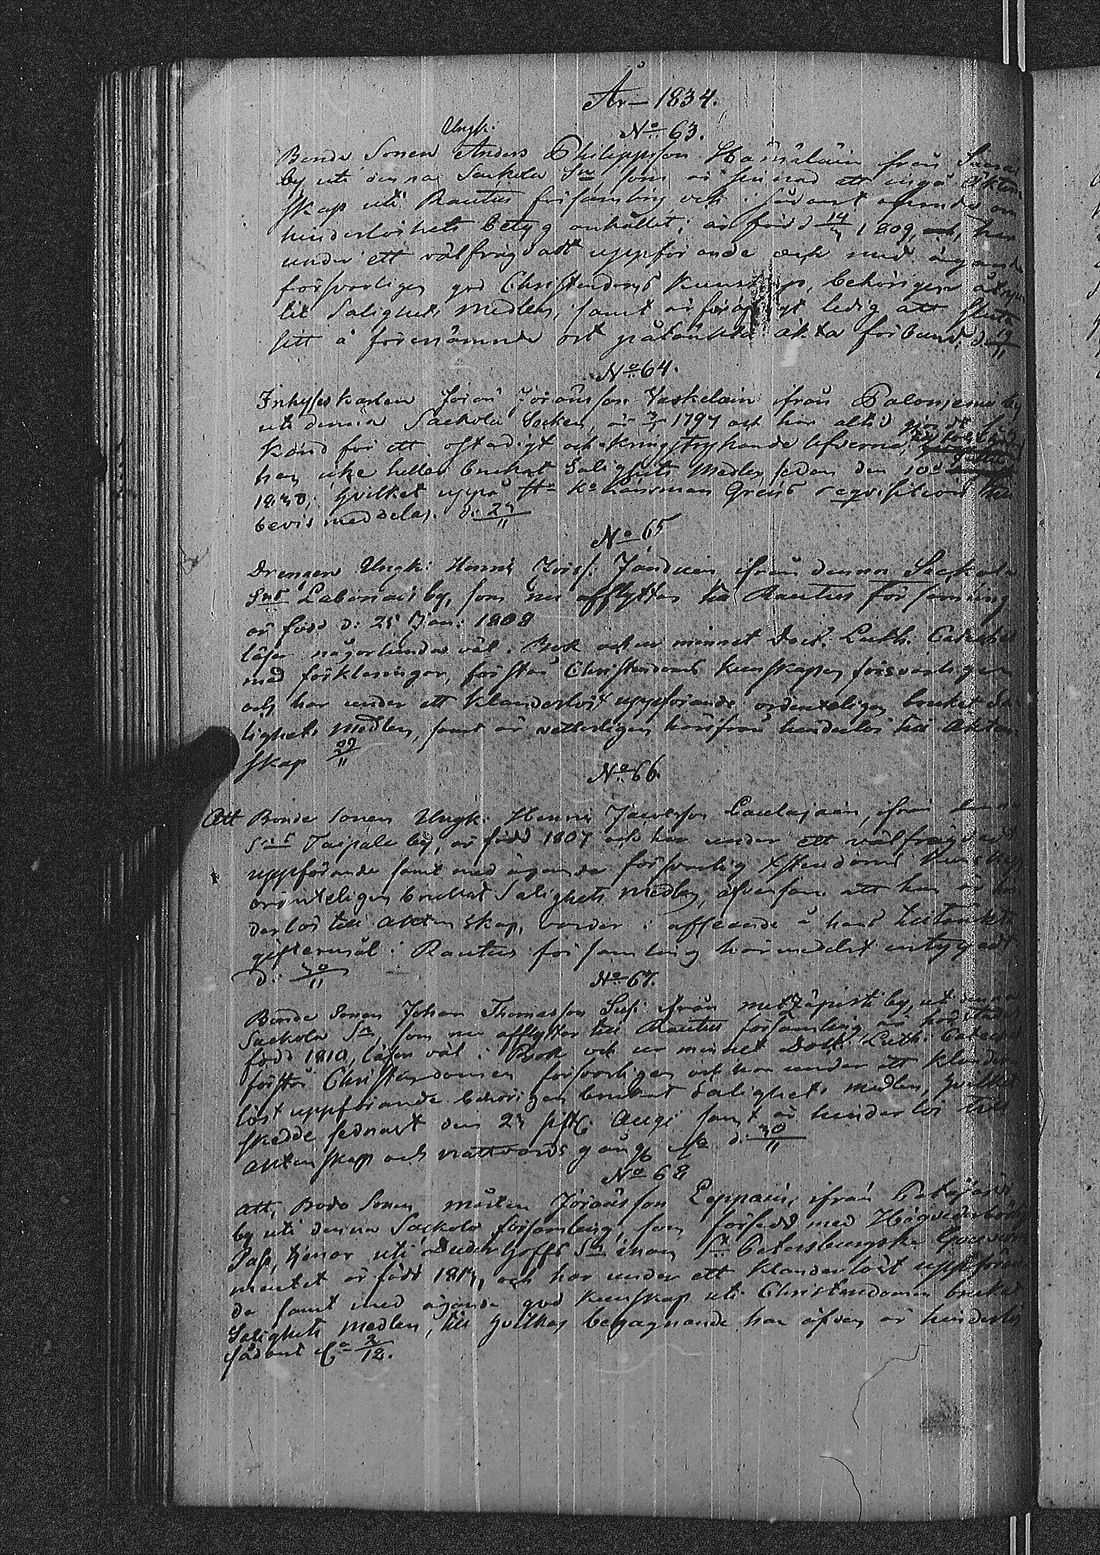 År 1834.
No 63.
Ungk:
Bonde Sonen Anders Philippsson Hämäläin ifrån
by uti denna Sackola Sn som är sinnad att ingå Äkten
skap uti Rautus församling och i sådant afseende om
hinderlöshets betyg anhållet; är född 14/ 1809, har
under ett välfrägdadt uppförande och med ägande
försvarligen god Christendoms kunskap, behörigen
tit Salighets Medlen, samt är ledig att sluta
sitt å förenämnde ort påtänkta äkta förbund, d:
No 64.
Inhyses karlen Jöran Jöransson Vaskelain ifrån Palomema by
uti denna Sackola Socken, är 1797 och har altid
känd för ett ostadigt och kringstrykande lefverne,
han icke heller brukat Salighets Medlen sedan den 10de
1830; hvilket uppå Hr Länsman requisition till
bevis meddelas. d: 27/11
No 65
Drengen Ungk: Hannes ifrån denna Sackola
Sns by, som nu afflyttar till Rautus församling
är född d: 25 Jan: 1808
läser någorlunda väl i Bok och ur minnet Doct. Luth. Cateches
med förklaringar, förstår Christendoms kunskapen försvarligen
och har under ett klanderlöst uppförande ordenteligen brukat Sa-
lighets Medlen, samt är vetterligen härifrån hinderlös till Äkten
skap 29/11
No 66
Att Bonde Sonen Ungk: Henric ifrån denna
Sns Taipale by, är född 1807 och har under ett välfrägdadt
uppförande samt med ägande försvarlig Xstendoms kunskap
ordenteligen brukat Salighets Medlen, äfvensom att han är hin
derlös till Äktenskap, varder i afseende å hans tilltänkta
giftermål i Rautus församling härmedelst intygadt
d: 30/11
No 67.
Bonde Sonen Johan Thomasson ifrån Metzäpirtti by, uti denna
Sackola Sn, som nu afflyttar till Rautus församling är
född 1810, läser väl i Bok och ur minnet Doct. Luth. Cateches
förstår Christendomen försvarligen och har under ett klander
löst uppförande behörigen brukat Salighets medlen, hvilket
skedde sednast den 23 sistl. Aug: samt är hinderlös till
Äktenskap och nattvards gång d: 30/11
No 68
Att, Bonde Sonen Mårten Jöransson Eeppain, ifrån
by uti denna Sackola församling, som försedd med Högvederbörligt
Pass, tjenar uti Duderhoffs Sn innom St Petersburgska Gouverne
mentet är född 1813, och har under ett klanderlöst uppföran
de samt med ägande god kunskap uti Christendomen brukat
Salighets Medlen, till hvilkas begagnande han äfven är hinderlös
sådant 2/12.